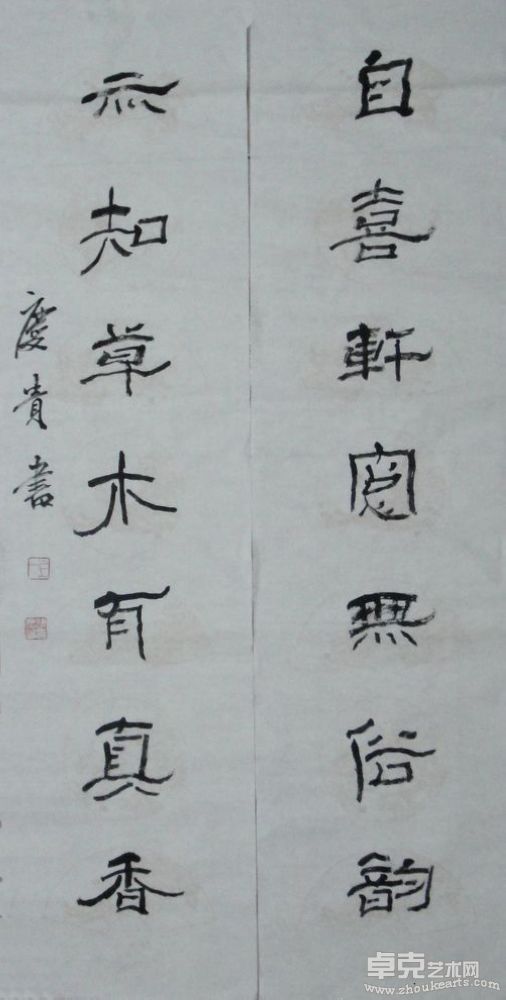 自喜軒窗無俗韵
亦知草木有真香
慶貴書
卓克艺术网
www.zhoukearts.com